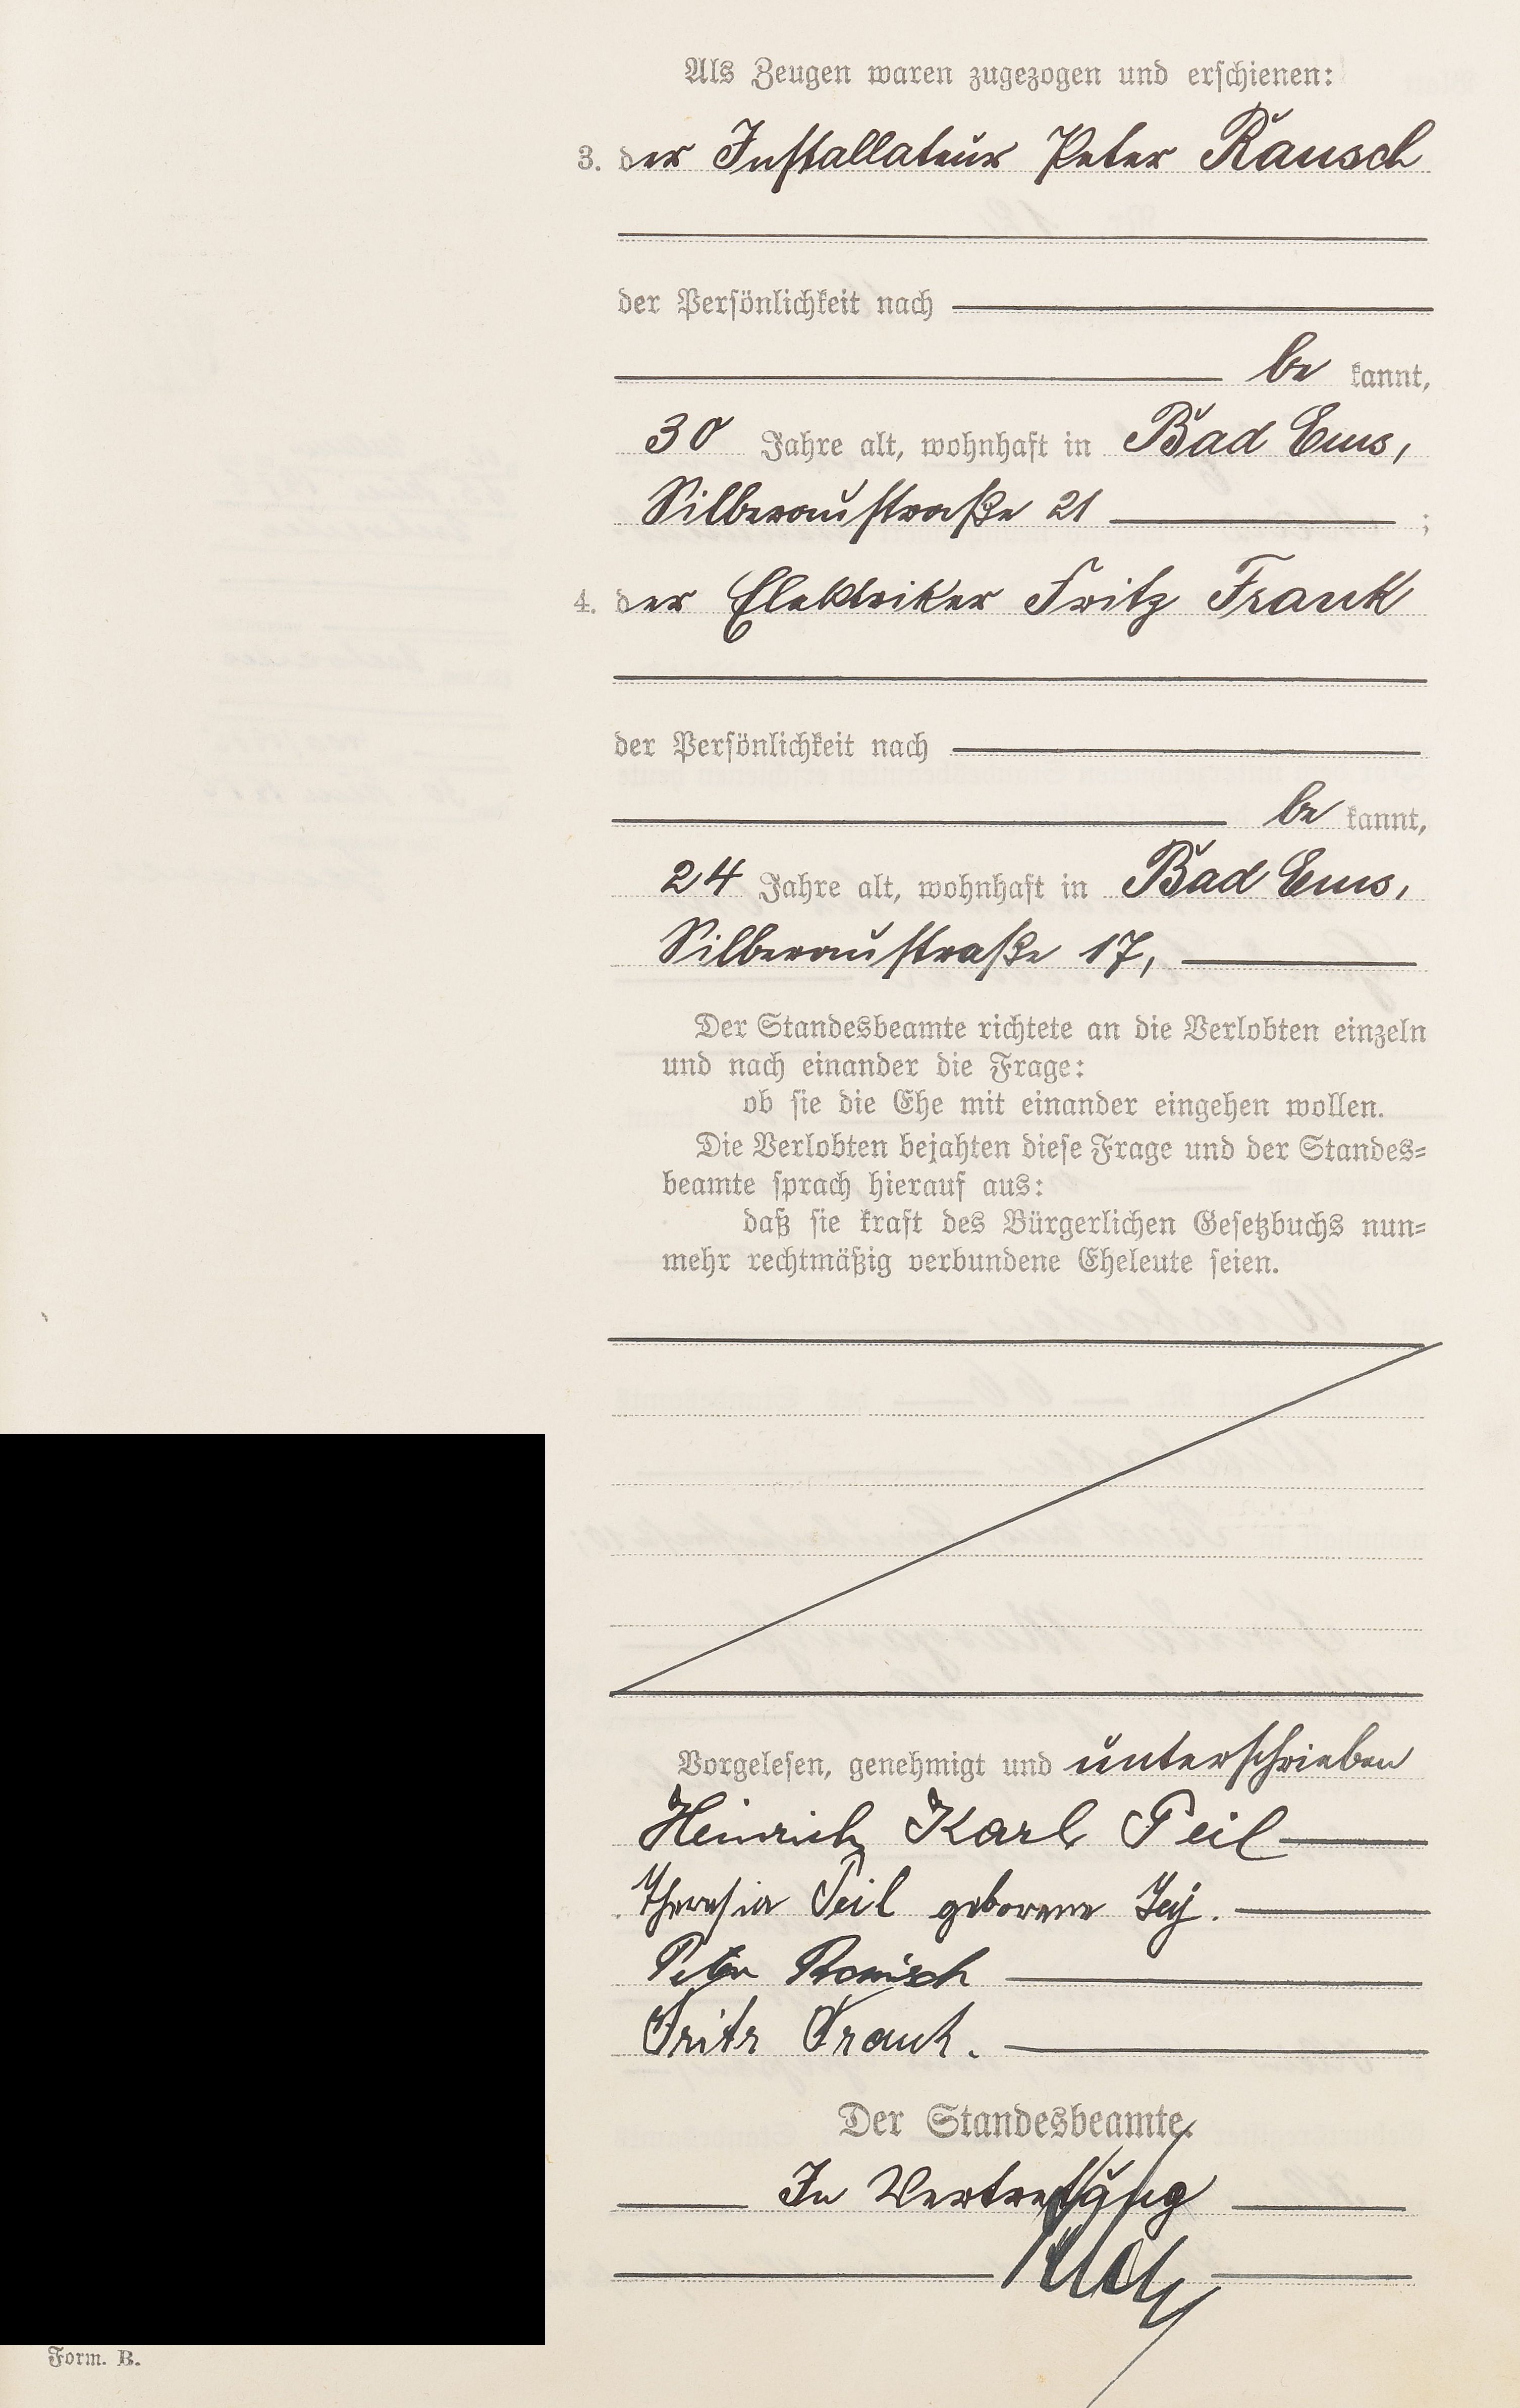 Als Zeugen waren zugezogen und erschienen:
3. der Installateur Peter Rausch
der Persönlichkeit nach
be kannt,
30 Jahre alt, wohnhaft in Bad Ems,
Silberaustraße 21 ;
4. der Elektriker Fritz Frank
der Persönlichkeit nach
be kannt,
24 Jahre alt, wohnhaft in Bad Ems,
Silberaustraße 17,
Der Standesbeamte richtete an die Verlobten einzeln
und nach einander die Frage:
ob sie die Ehe mit einander eingehen wollen.
Die Verlobten bejahten diese Frage und der Standes=
beamte sprach hierauf aus:
daß sie kraft des Bürgerlichen Gesetzbuchs nun=
mehr rechtmäßig verbundene Eheleute seien.
Vorgelesen, genehmigt und unterschrieben
Heinrich Karl Peil
Theresia Peil geborene
Peter Rausch
Fritz Frank.
Der Standesbeamte.
In Vertretung
Form. B.